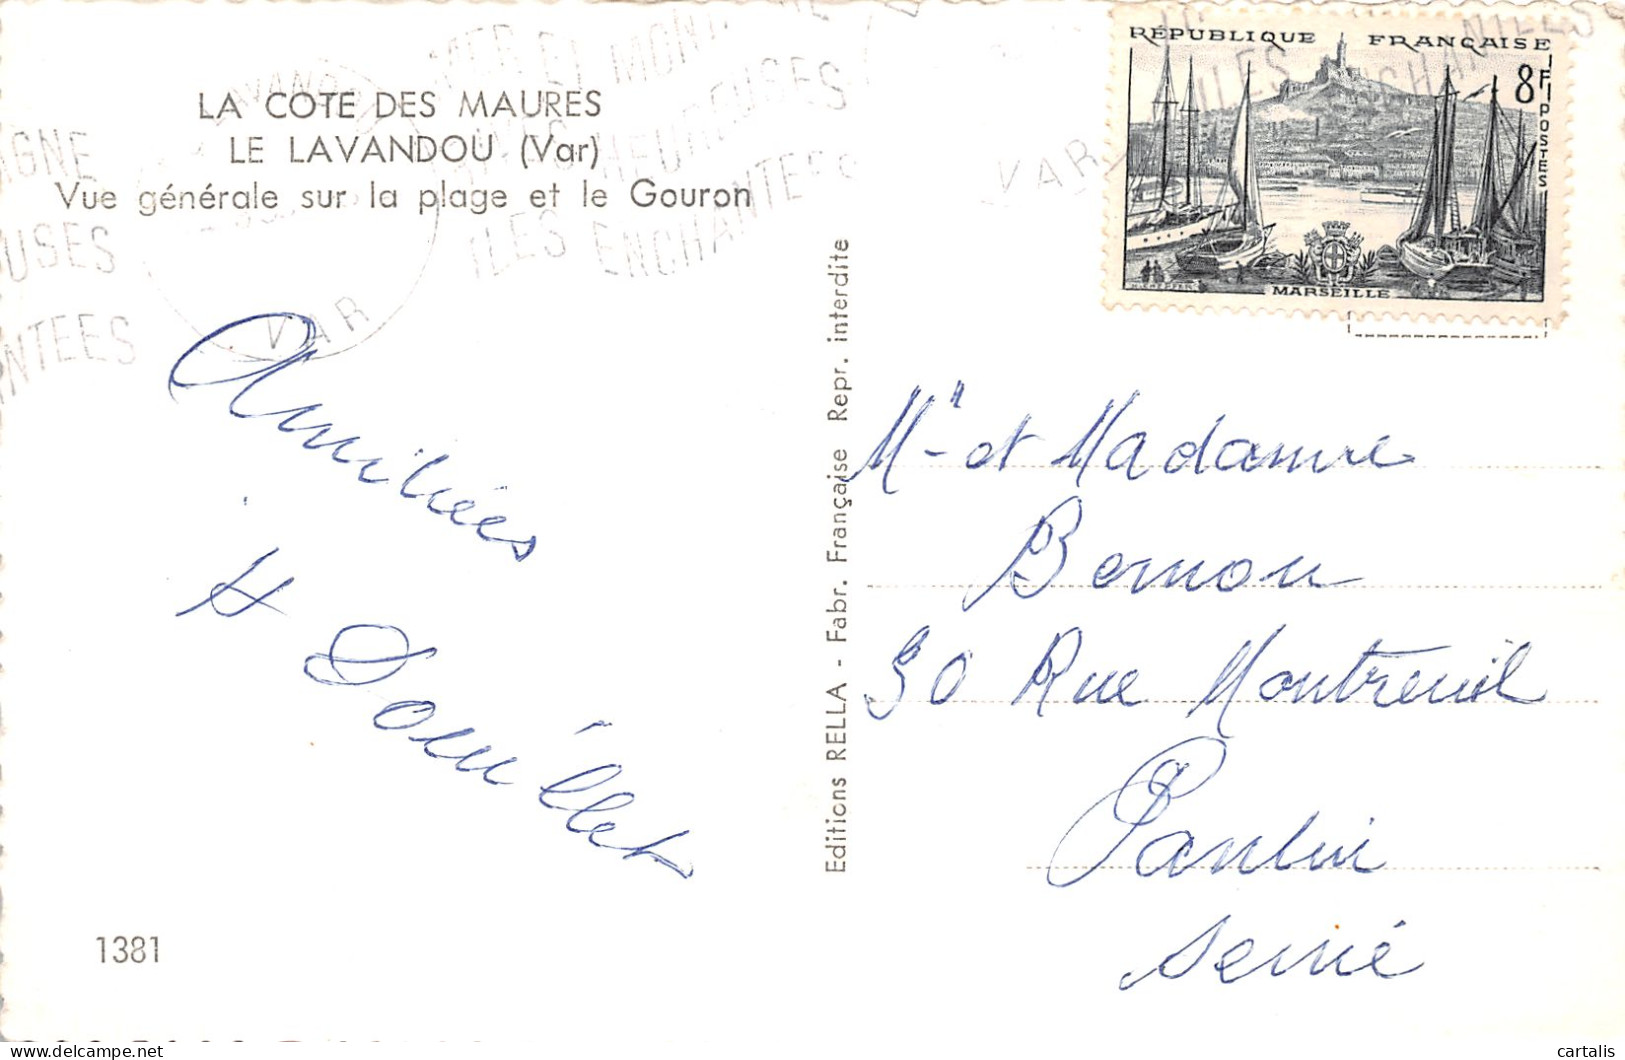 LA COTE DES MAURES
LE LAVANDOU (Var)
Vue générale sur la plage et le Gouron
MER ET MONT
HEUREUSES
ILES ENCHANTEES
AGNE
USES
NTEES
LAVAND
VAR
Amitiées
H Douillet
1381
Editions RELLA - Fabr. Française Repr. interdite
RÉPUBLIQUE FRANÇAISE
8F
POSTES
MARSEILLE
ILES ENCHANTEES
VAR
Mr et Madame
Bernon
30 Rue Montreuil
Pantin
Seine
cartalis